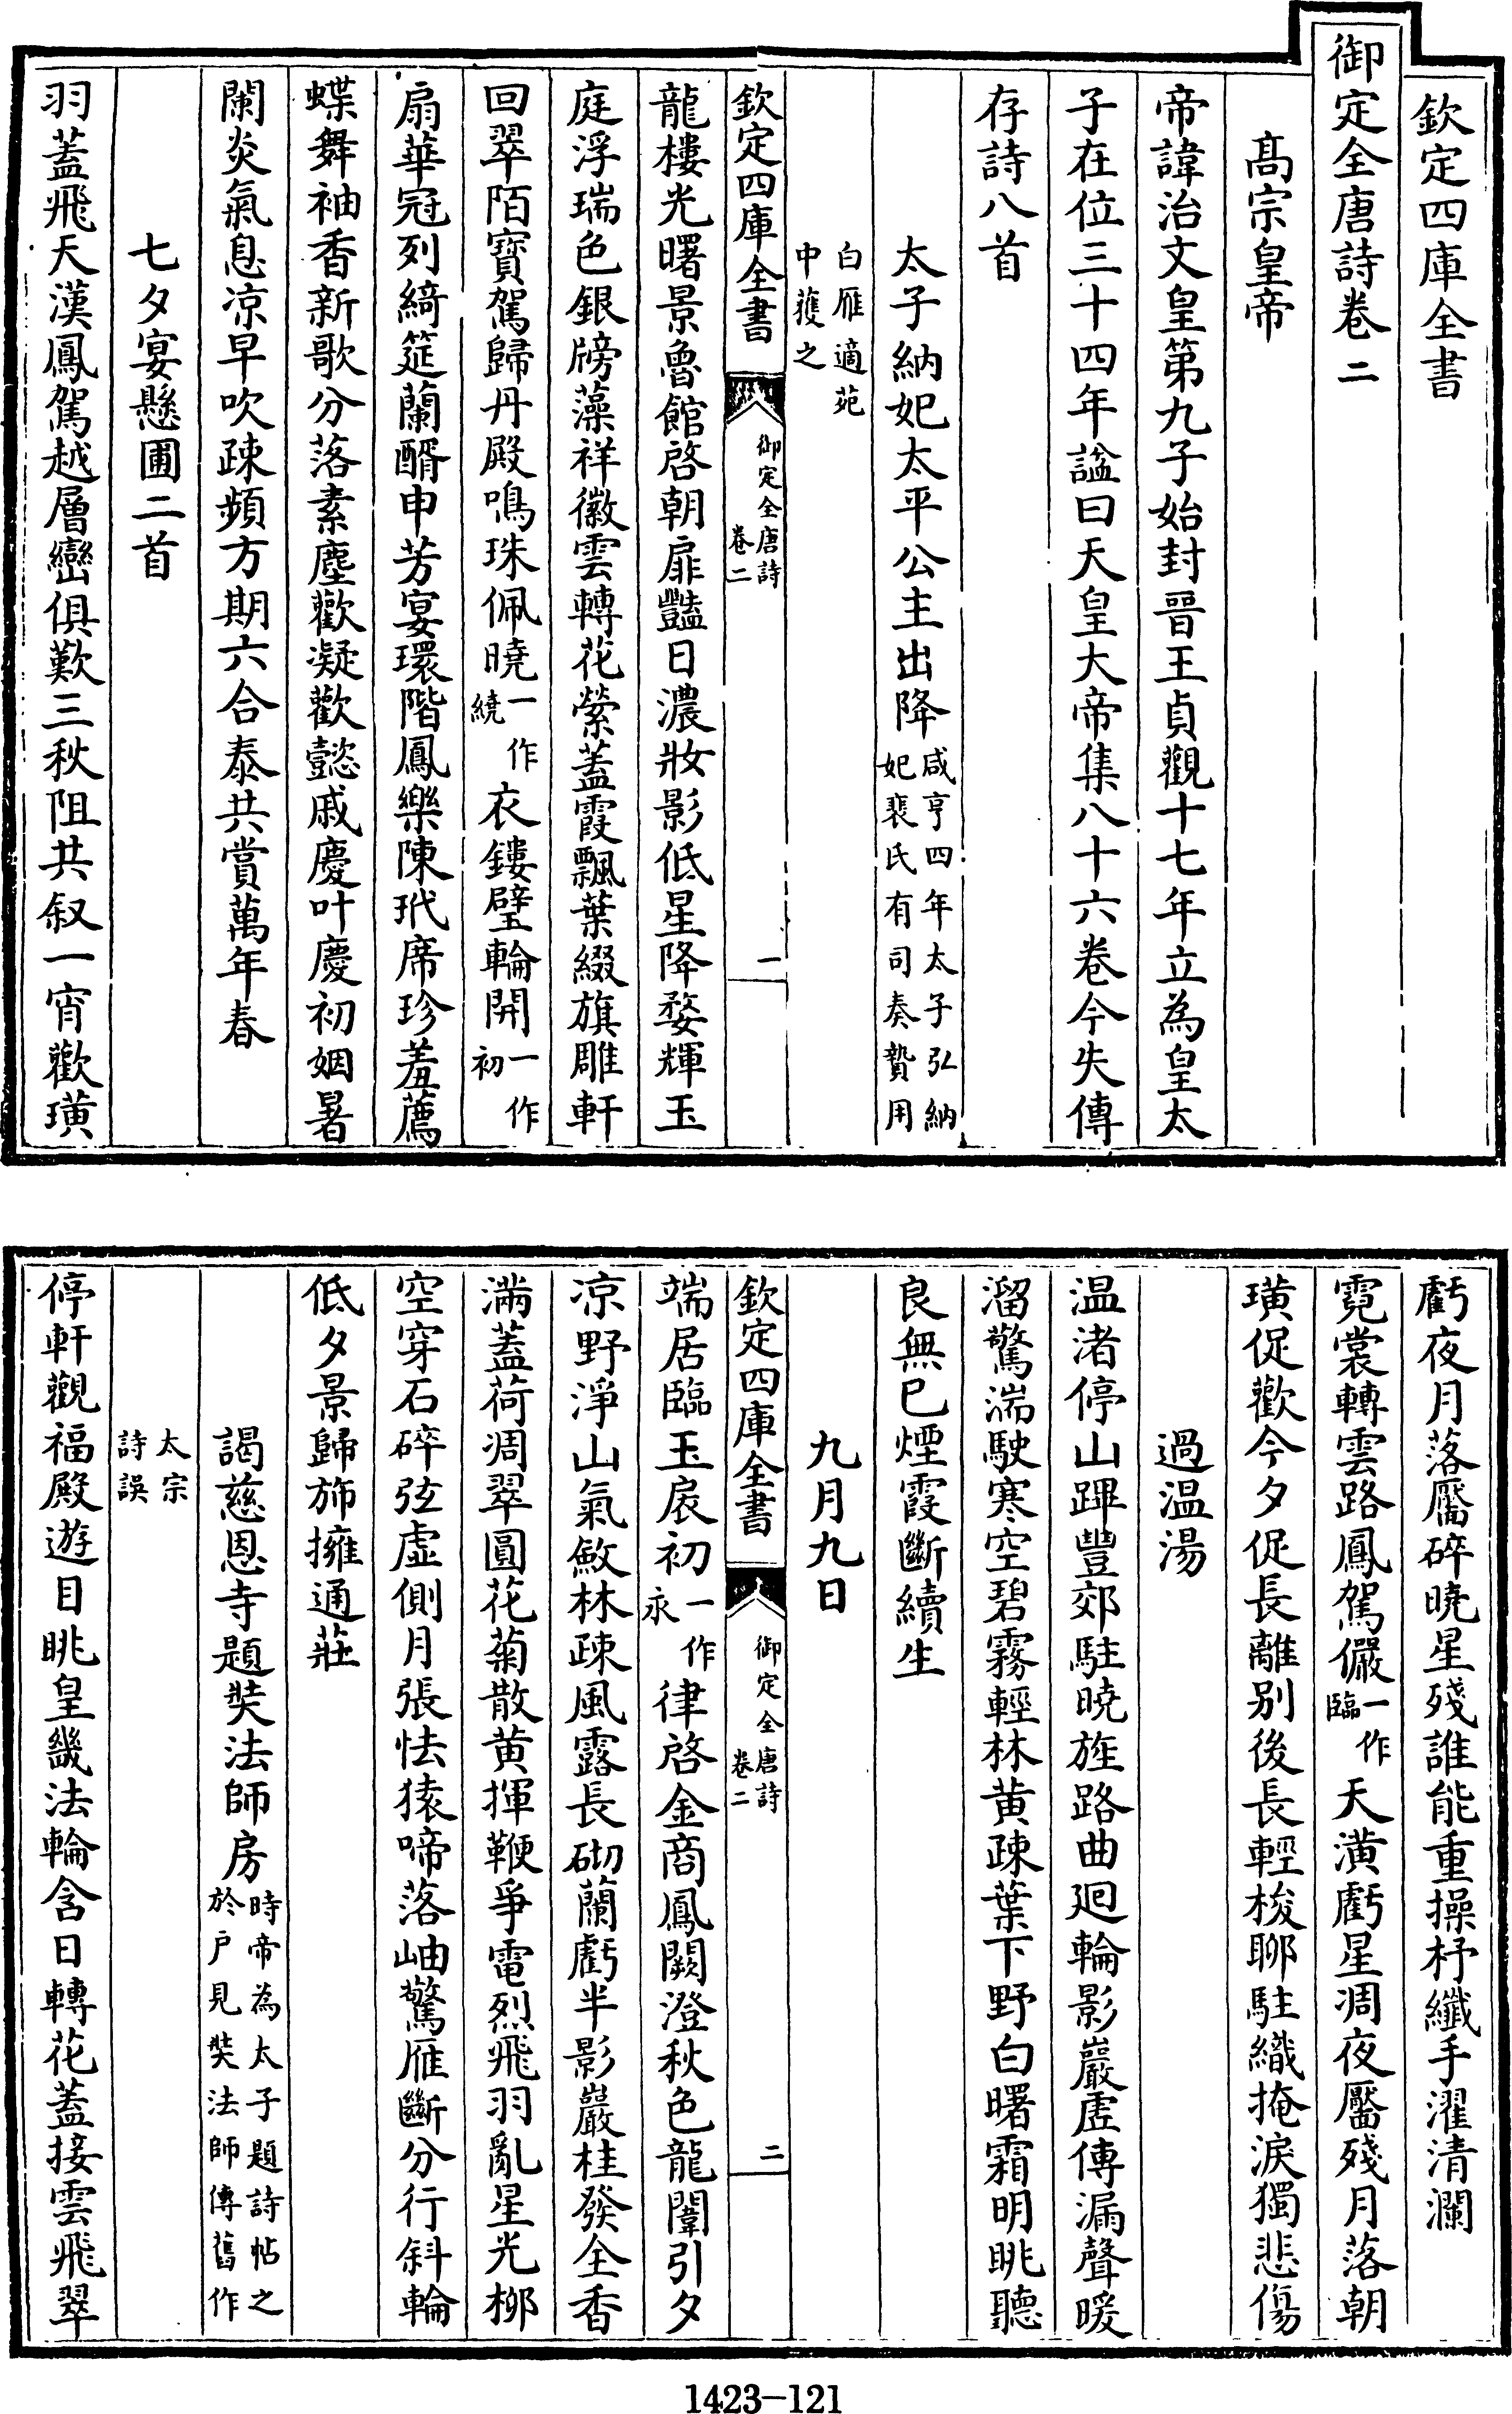 欽定四庫全書
御定全唐詩卷二
髙宗皇帝
帝諱治文皇第九子始封晉王貞觀十七年立為皇太
子在位三十四年諡曰天皇大帝集八十六卷今失傳
存詩八首
太子納妃太平公主出降咸亨四年太子弘納
妃裴氏有司奏贄用
白雁適苑
中獲之
欽定四庫全書
御定全唐詩
卷二
一
龍樓光曙景魯館啓朝扉豔日濃妝影低星降婺輝玉
庭浮瑞色銀牓藻祥徽雲轉花縈蓋霞飄葉綴旗雕軒
回翠陌寶駕歸丹殿鳴珠佩曉一作
繞衣鏤璧輪開一作
初
扇華冠列綺筵蘭醑申芳宴環階鳳樂陳玳席珍羞薦
蝶舞袖香新歌分落素塵歡凝歡懿戚慶叶慶初姻暑
闌炎氣息凉早吹疎頻方期六合泰共賞萬年春
七夕宴懸圃二首
羽蓋飛天漢鳳駕越層巒俱歎三秋阻共叙一宵歡璜
虧夜月落靨碎曉星殘誰能重操杼纖手濯清瀾
霓裳轉雲路鳳駕儼一作
臨天潢虧星凋夜靨殘月落朝
璜促歡今夕促長離别後長輕梭聊駐織掩淚獨悲傷
過温湯
温渚停山蹕豐郊駐曉旌路曲廻輪影巖虛傳漏聲暖
溜驚湍駛寒空碧霧輕林黄疎葉下野白曙霜明眺聽
良無已煙霞斷續生
九月九日
欽定四庫全書
御定全唐詩
卷二
二
端居臨玉扆初一作
永律啓金商鳳闕澄秋色龍闈引夕
凉野淨山氣斂林疎風露長砌蘭虧半影巖桂發全香
滿蓋荷凋翠圓花菊散黄揮鞭爭電烈飛羽亂星光柳
空穿石碎弦虛側月張怯猿啼落岫驚雁斷分行斜輪
低夕景歸斾擁通莊
謁慈恩寺題奘法師房時帝為太子題詩帖之
於户見奘法師傳舊作
太宗
詩誤
停軒觀福殿遊目眺皇畿法輪含日轉花蓋接雲飛翠
1423—121